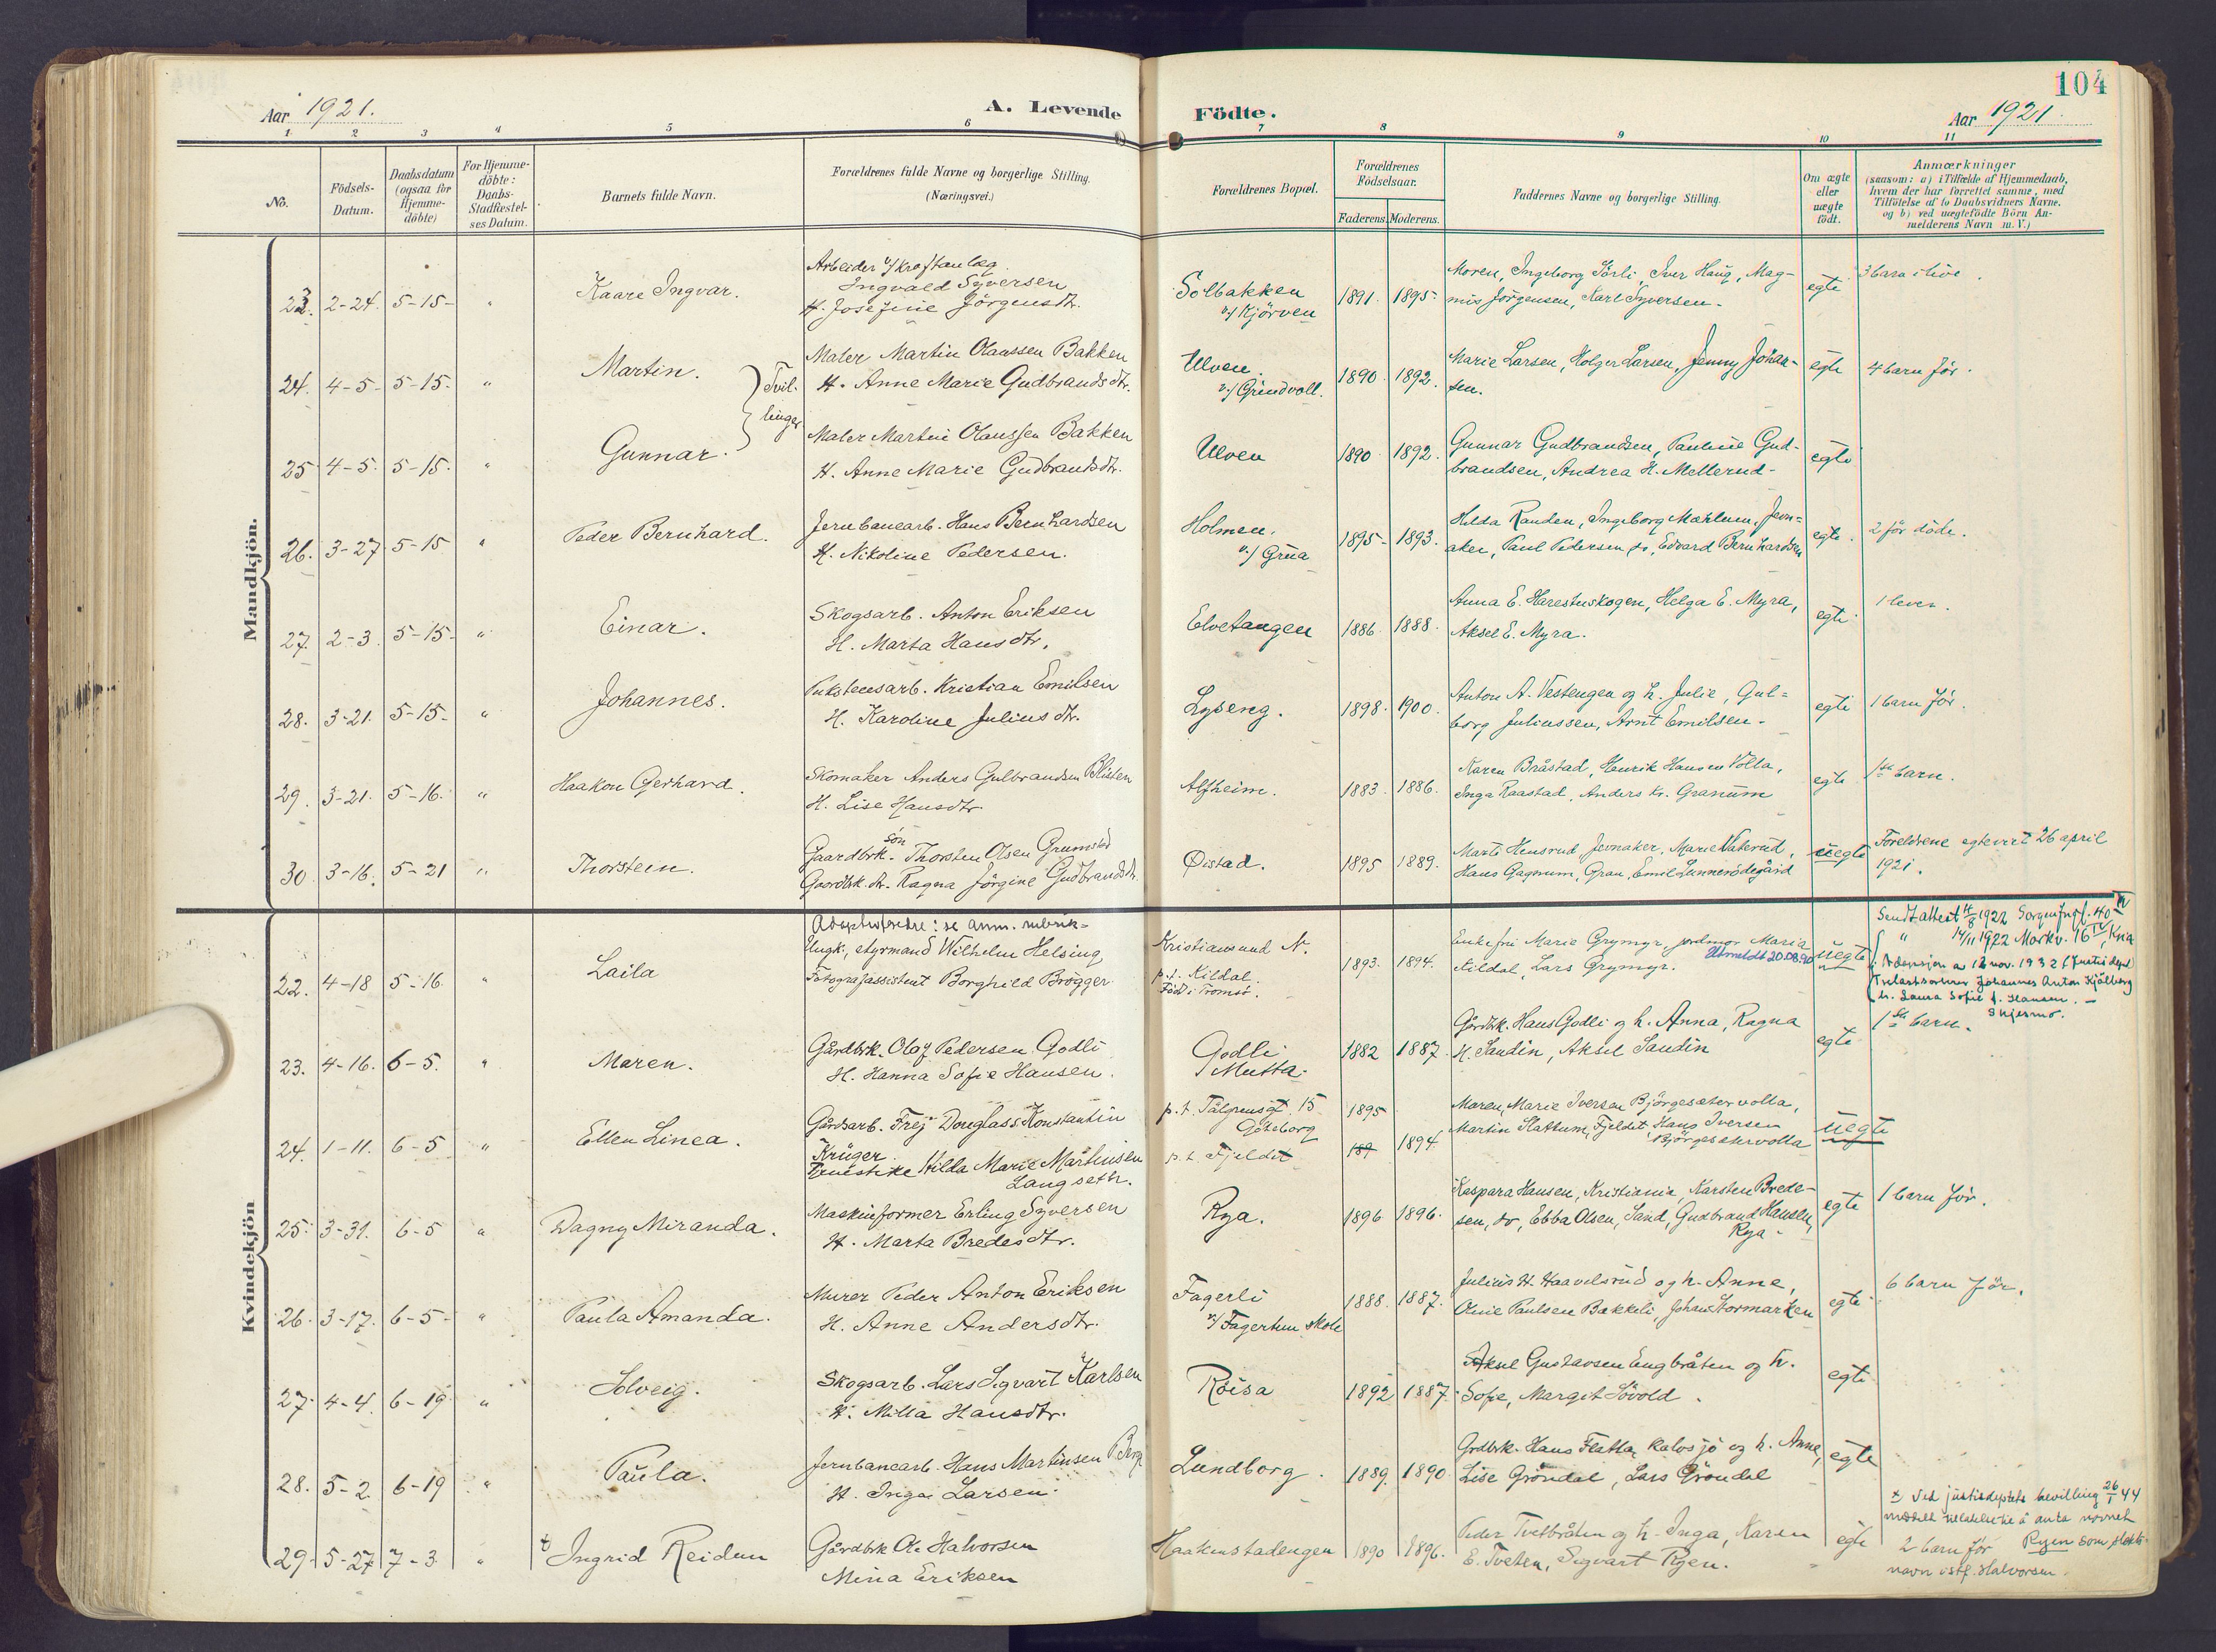 104
Aar 1921.
A. Levende Födte.
Aar 1921.
1 2 3 4 5 6 7 8 9 10 11
No.
Födsels-
Datum.
Daabsdatum
(ogsaa for
Hjemme-
döbte)
For Hjemme-
döbte:
Daabs-
Stadfæstel-
ses Datum.
Barnets fulde Navn.
Forældrenes fulde Navne og borgerlige Stilling.
(Næringsvei.)
Forældrenes Bopæl.
Forældrenes
Födselsaar.
Faderens. Moderens.
Faddernes Navne og borgerlige Stilling.
Om ægte
eller
uægte
födt.
Anmærkninger
(saasom: a) i Tilfælde af Hjemmedaab,
hvem der har forrettet samme, med
Tilföielse af to Daabsvidners Navne,
og b) ved uægtefödte Börn An-
melderens Navn m. V.)
Mandkjön.
23. 2-24. 5-15- " Kaare Ingvar.
Arbeider v/ Kraftanlæg
Ingvald Syversen
H. Josefine Jörgensdtr.
Solbakken
v/ Kjörven
1891. 1895.
Moren, Ingeborg Sörli, Iver Haug, Mag-
nus Jörgensen, Karl Syversen.
egte
3 barn i live.
24. 4-5- 5-15- " Martin.
Tvil-
linger
Maler Martin Olaussen Bakken
H. Anne Marie Gudbrandsdtr.
Ulven.
v/ Grindvoll.
1890. 1892.
Marie Larsen, Holger Larsen, Jenny Johan-
sen.
egte
4 barn för.
25 4-5. 5-15. " Gunnar.
Maler Martin Olaussen Bakken
H. Anne Marie Gudbrandsdtr.
Ulven
1890 1892.
Gunnar Gudbrandsen, Pauline Gud-
brandsen, Andrea H. Mellerud-
egte
26. 3-27 5-15 " Peder Bernhard.
Jernbanearb. Hans Bernhardsen
H. Nikoline Pedersen.
Holmen.
v/ Grua
1895- 1893.
Hilda Randen, Ingeborg Mæhlum, Jevn-
aker, Paul Pedersen do, Edvard Bernhardsen
egte.
2 för döde.
27. 2-3. 5-15- " Einar.
Skogsarb. Anton Eriksen
H. Marta Hansdtr.
Elvetangen
1886. 1888.
Anna E. Harestuskogen, Helga E. Myra,
Aksel E. Myra.
egte
1 lever.
28. 3-21. 5-15- " Johannes.
Pukstensarb. Kristian Emilsen
H. Karoline Juliusdtr.
Lyseng.
1898. 1900.
Anton A. Vestengen og h. Julie, Gul-
borg Juliussen, Arnt Emilsen-
egte
1 barn för.
29. 3-21. 5-16. " Haakon Gerhard.
Skomaker Anders Gulbrandsen Blisten
H. Lise Hansdtr.
Alfheim.
1883. 1886.
Karen Bråstad, Henrik Hansen Volla,
Inga Raastad, Anders Kr. Granum
egte
1ste barn.
30. 3-16. 5-21 " Thorstein.
Gaardbrk. sön Thorsten Olsen Grumstad
Gaardbk. dtr. Ragna Jörgine Gudbrandsdtr.
Øistad.
1895 1889.
Marte Hensrud Jevnaker, Marie Væterud,
Hans Gagnum, Gran, Emil Lunnerödegård
uegte
Foreldrene egteviet 26 april
1921.
Kvindekjön
22. 4-18 5-16. " Laila
Adoptivforeldre: se anm. rubrik-
Ungk., styrmand Wilhelm Helsing
Fotografassistent Borghild Brögger
Kristiansund N.
p.t. Kildal.
Född i Tromsö.
1893. 1894.
Enkefru Marie Grymyr, jordmor Maria
Kildal, Lars Grymyr.
Utmeldt 20.08.90
uegte
Sendt attest 14/8 1922 Sorgenfrigt. 40 IV
" 14/11 1922 Markv. 16 IV, Kria
Adopsjon av 12 nov. 1932 (Justisdepd)
Trelastsorterer Johannes Anton Kjölberg
h. Laura Sofie f. Hansen. -
Skjesmo.
23. 4-16. 6-5. " Maren.
Gårdbrk. Olaf Pedersen Godli
H. Hanna Sofie Hansen.
Godli
Mutta.
1882 1887.
Gårdbk. Hans Godli og h. Anna, Ragna
H. Sandin, Aksel Sandin
egte
1ste barn.
24. 1-11. 6-5 " Ellen Linea.
Gårdsarb. Frej Douglass Konstantin
Krüger.
Hilda Marie Martinsen
Langsetr.
p.t. Tålgrensgt. 15
Göteborg
p.t. Fjeldet
1895
1894.
Moren, Marie Iversen Björgesætervolla,
Martin Slattum, Fjeldet, Hans Iversen
Björgesetervolla
uegte
25. 3-31. 6-5 " Dagny Miranda.
Maskinformer Erling Syversen
H. Marta Bredesdtr.
Rya.
1896 1896.
Kaspara Hansen, Kristiania, Karsten Brede-
sen, do, Ebba Olsen, Sand, Gudbrand Hansen,
Rya-
egte
1 barn för.
26. 3-17. 6-5- " Paula Amanda.
Murer Peder Anton Eriksen
H. Anne Andersdtr.
Fagerli
v/ Fagertun skole
1888. 1887.
Julius H. Haavelsrud og h. Anne,
Oline Paulsen Bakkeli, Johan Stormarken
egte
6 barn för.
27. 4-4. 6-19 " Solveig.
Skogsarb. Lars Sigvart Karlsen
H. Milla Hansdtr.
Röisa
1892 1887.
Aksel Gustavsen Engbråten og h.
Sofie, Margit Sövold.
egte
28. 5-2. 6-19 " Paula.
Jernbanearb. Hans Martinsen Berg
H. Inga Larsen.
Lundborg.
1889. 1890.
Grdbrk. Hans Flatla, Kalvsjö og h. Anne,
Lise Gröndal, Lars Gröndal
egte
29. 5-27 7-3. " Ingrid Reidun
Gårdbrk Ole Halvorsen
Mina Eriksen
Haakenstadengen
1890 1896.
Peder Tvetbråten og h. Inga, Karen
E. Tveten, Sigvart Ryen.
egte
Ved justisdeptets bevilling 26/1 44
meddelt tillatelse til å anta navnet
2 barn för Ryen som slekts-
navn istf. Halvorsen.